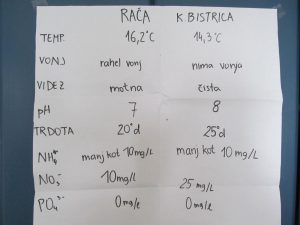 RAČA K.BISTRICA
TEMP. 16,2°C 14,3°C
VONJ rahel vonj nima vonja
VIDEZ motna čista
pH 7 8
TRDOTA 20°d 25°d
NH₄⁺ manj kot 10 mg/L manj kot 10 mg/L
NO₃⁻ 10 mg/L 25 mg/L
PO₄³⁻ 0 mg/l 0 mg/l